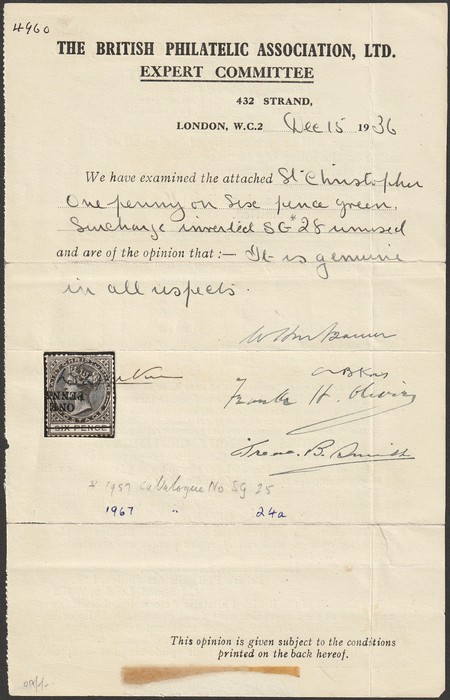 4960
THE BRITISH PHILATELIC ASSOCIATION, LTD.
EXPERT COMMITTEE
432 STRAND,
LONDON, W.C.2 Dec 15 1936
We have examined the attached St Christopher
One penny on Six pence green.
Surcharge inverted SG* 28 unused
and are of the opinion that :— It is genuine
in all respects.
Frank H. Oliver
ONE
PENNY
SIX PENCE
B. Smith
* 1957 Catalogue No SG 25
1967 " 24a
This opinion is given subject to the conditions
printed on the back hereof.